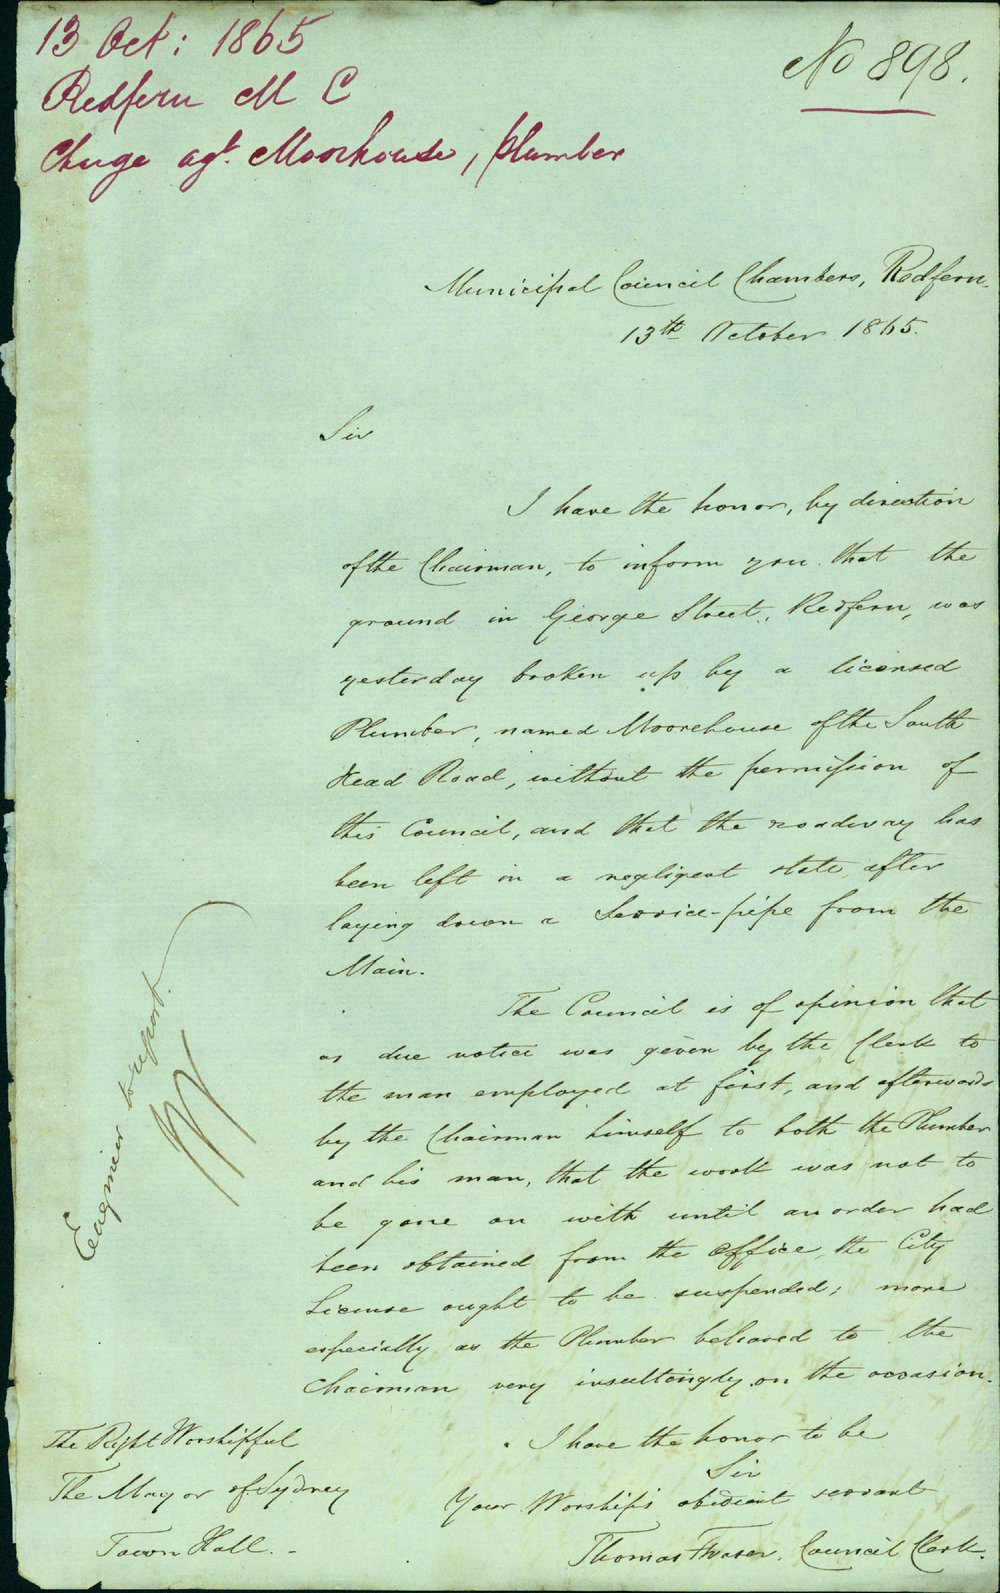 13 Oct: 1865
Redfern M C
Charge agt. Moorhouse, Plumber
No 898.
Municipal Council Chambers, Redfern.
13th October 1865.
Sir
I have the honor, by direction
of the Chairman, to inform you that the
ground in George Street, Redfern, was
yesterday broken up by a licensed
Plumber, named Moorehouse of the South
Head Road, without the permission of
this Council, and that the roadway has
been left in a negligent state, after
laying down a Service-pipe from the
Main.
The Council is of opinion that
as due notice was given by the Clerk to
the man employed at first, and afterwards
by the Chairman himself to both the Plumber
and his man, that the work was not to
be gone on with until an order had
been obtained from the Office, the City
License ought to be suspended; more
especially as the Plumber behaved to the
Chairman very insultingly on the occasion.
I have the honor to be
Sir
Your Worship's obedient servant
Thomas Fraser, Council Clerk.
The Right Worshipful
The Mayor of Sydney
Town Hall. -
Engineer to report.